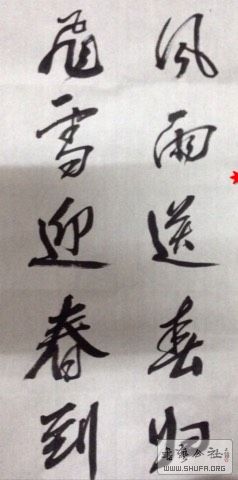 风雨送春归
飛雪迎春到
书艺公社
WWW.SHUFA.ORG